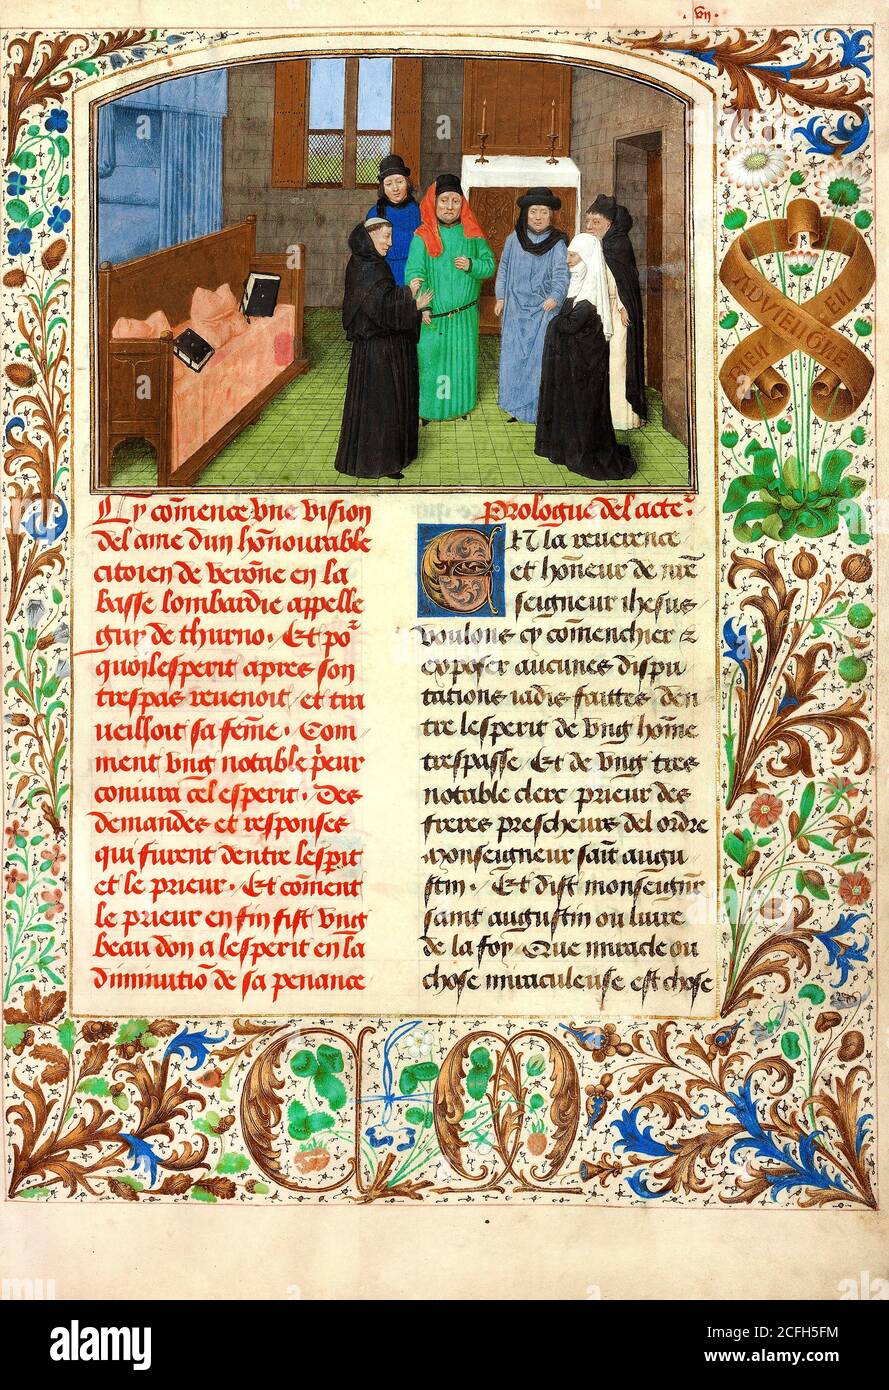 .vij.
BIEN
ADVIENGNE
EN.
Cy comence une vision
del ame dun honnourable
citoien de verone en la
basse lombardie appelle
guy de thurno. Et por
quoi lesperit apres son
trespas revenoit et tra
veilloit sa feme. Com
ment ung notable prieur
coniura cel esperit. Des
demandes et responses
qui furent dentre lesprit
et le prieur. Et coment
le prieur en fin fist ung
beau don a lesperit en la
diminutio de sa penance
Prologue de lacteur
A la reverence
et honneur de nre
seigneur ihesus
Voulons cy comenchier &
exposer aucunes dispu
tations iadis faittes den
tre lesperit de ung home
trespasse Et de ung tres
notable clerc prieur des
freres prescheurs del ordre
monseigneur saint augu
stin. Et dist monseigneur
saint augustin ou livre
de la foy. Que miracle ou
chose miraculeuse est chose
CM
alamy
Image ID: 2CFH5FM
www.alamy.com